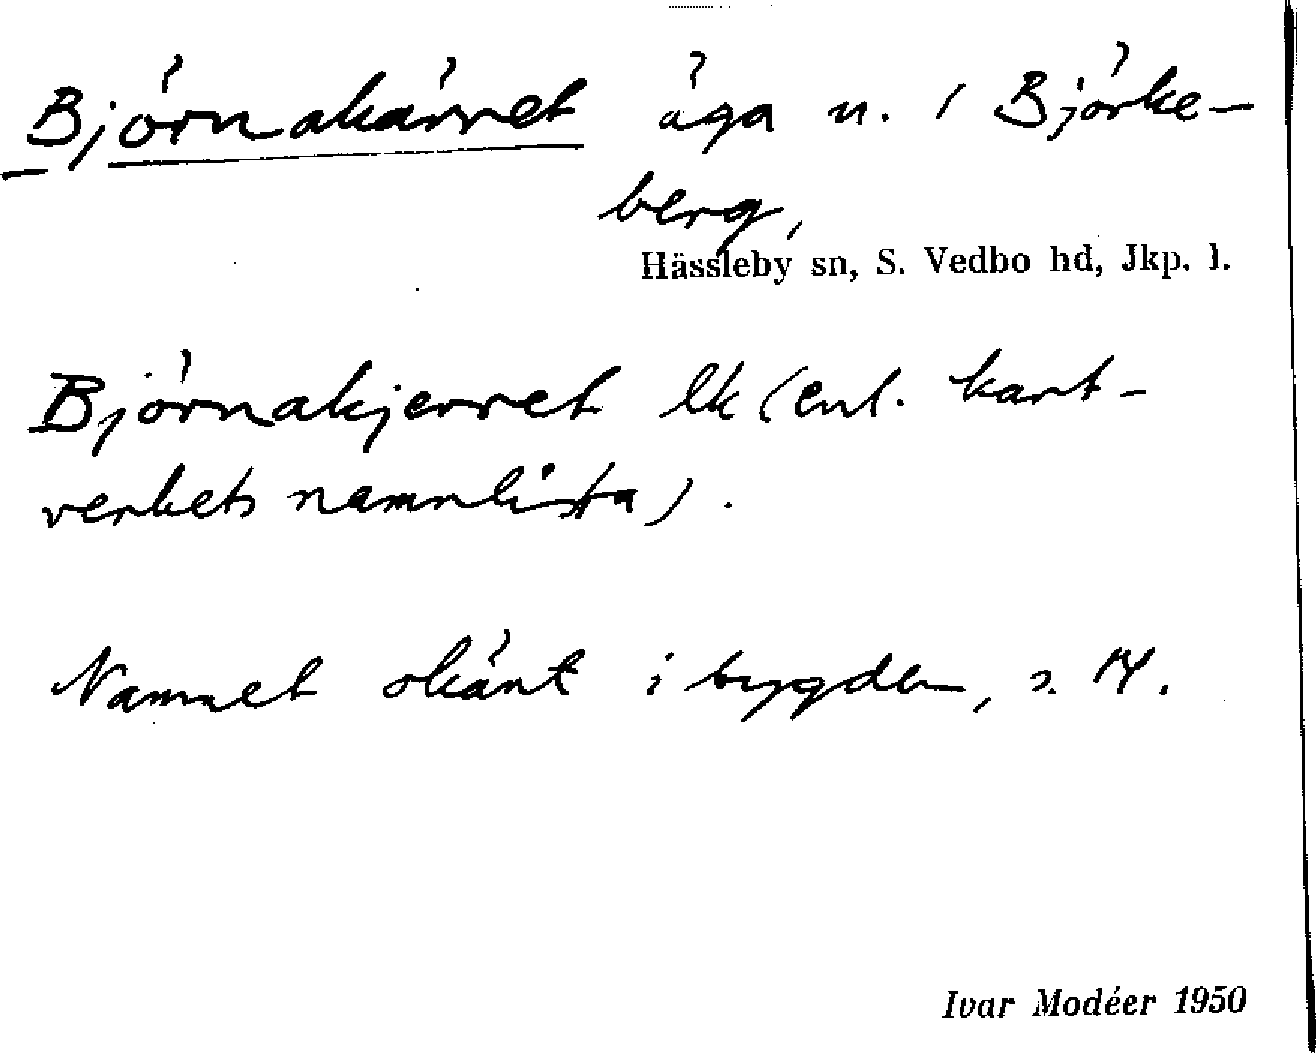 Björnakärret äga n. i Björke-
berg,
Hässleby sn, S. Vedbo hd, Jkp. l.
Björnakjerret lk (enl. kart-
verkets namnlista).
Namnet okänt i bygden, s. 14.
Ivar Modéer 1950